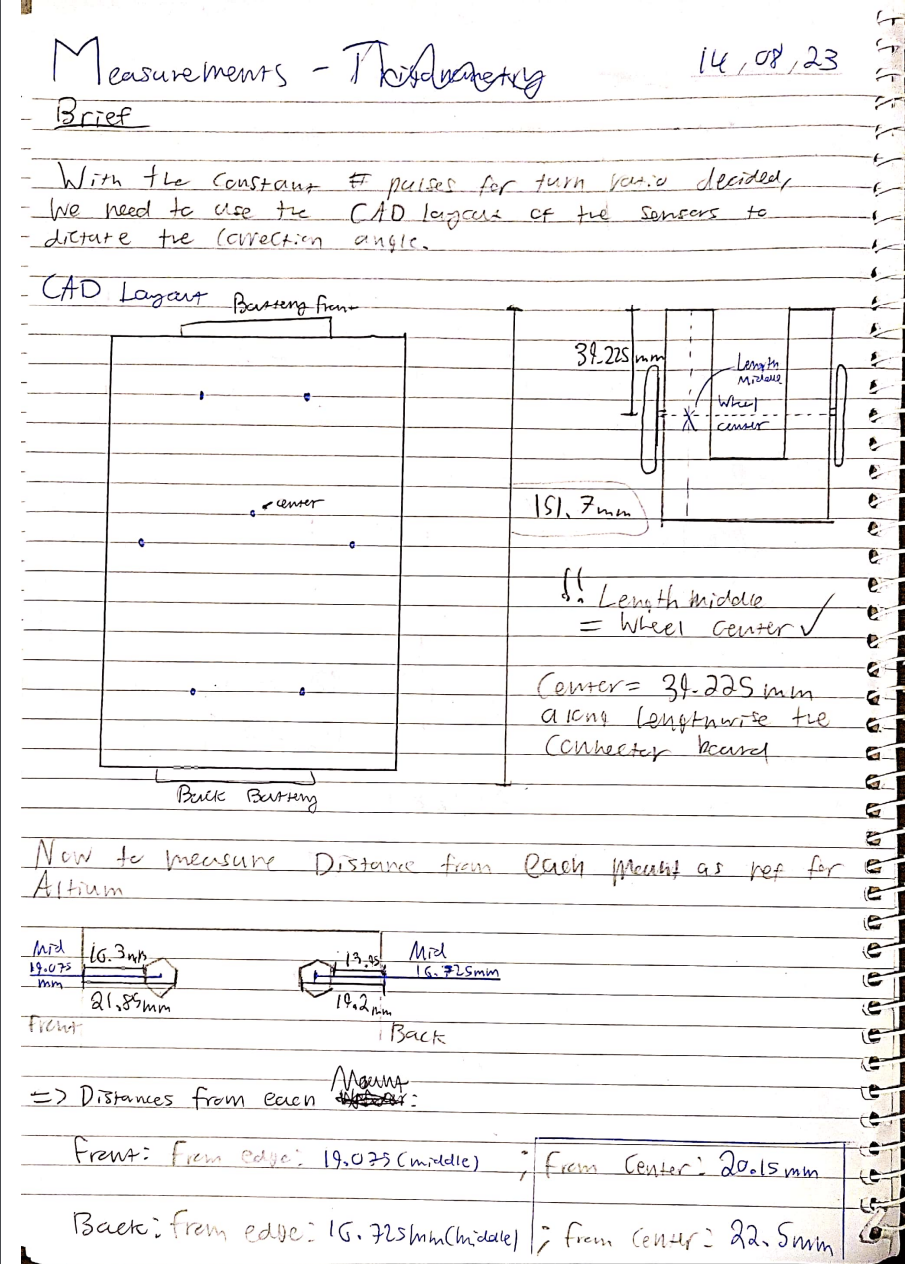 Measurements -
14,08,23
Brief
With the constant # pulses for turn ratio decided,
we need to use the CAD layout of the sensors to
dictate the correction angle.
CAD Layout
Battery front
center
Back Battery
151.7mm
39.225mm
Length
Middle
Wheel
center
!! Length middle
= Wheel center ✓
Center = 39.225mm
along lengthwise the
connector board
Now to measure Distance from each mount as ref for
Altium
Mid
19.075
mm
16.3mm
21.85mm
Front
13.95
19.2mm
Mid
16.725mm
Back
=> Distances from each Mount:
Front: From edge: 19.075(middle) ; From Center: 20.15mm
Back: from edge: 16.725mm(middle) ; from center: 22.5mm